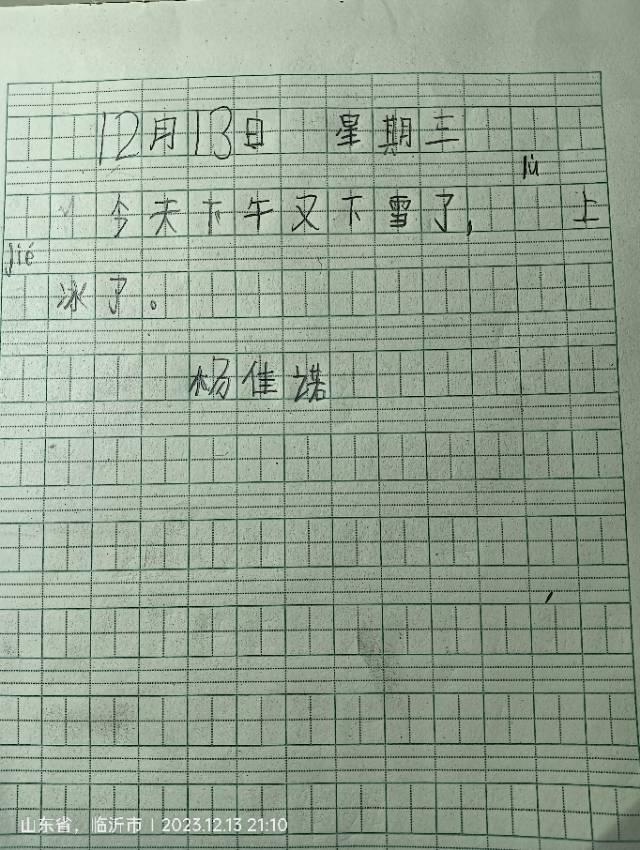 12月13日 星期三
今天下午又下雪了, lù 上
jié 冰了。
杨佳诺
山东省，临沂市 | 2023.12.13 21:10